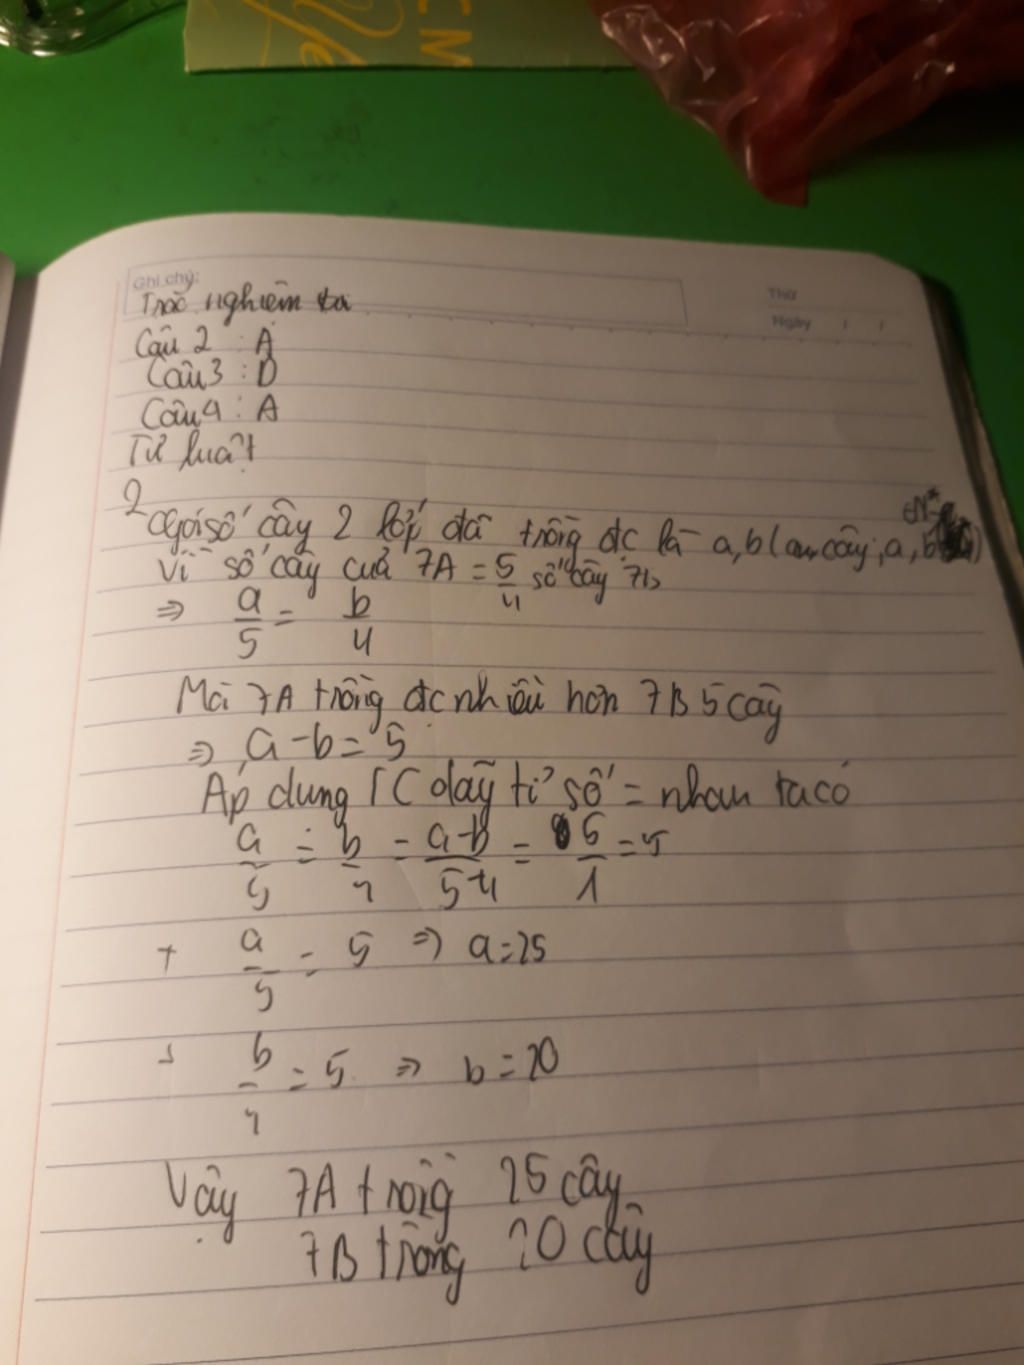 CM
Ghi chú:
Thứ
Ngày / /
Trắc nghiệm
Câu 2 : A
Câu 3 : D
Câu 4 : A
Tự luật
2
Gọi số cây 2 lớp đã trồng đc là a, b ( cây; a, b ∈N*)
Vì số cây của 7A = 5/4 số cây 7b
⇒ a/5 = b/4
Mà 7A trồng đc nhiều hơn 7B 5 cây
⇒ a-b = 5
Áp dụng TC dãy tỉ số = nhau ta có
a/5 = b/4 = a-b/5-4 = 5/1 = 5
+ a/5 = 5 ⇒ a = 25
+ b/4 = 5 ⇒ b = 20
Vậy 7A trồng 25 cây
7B trồng 20 cây